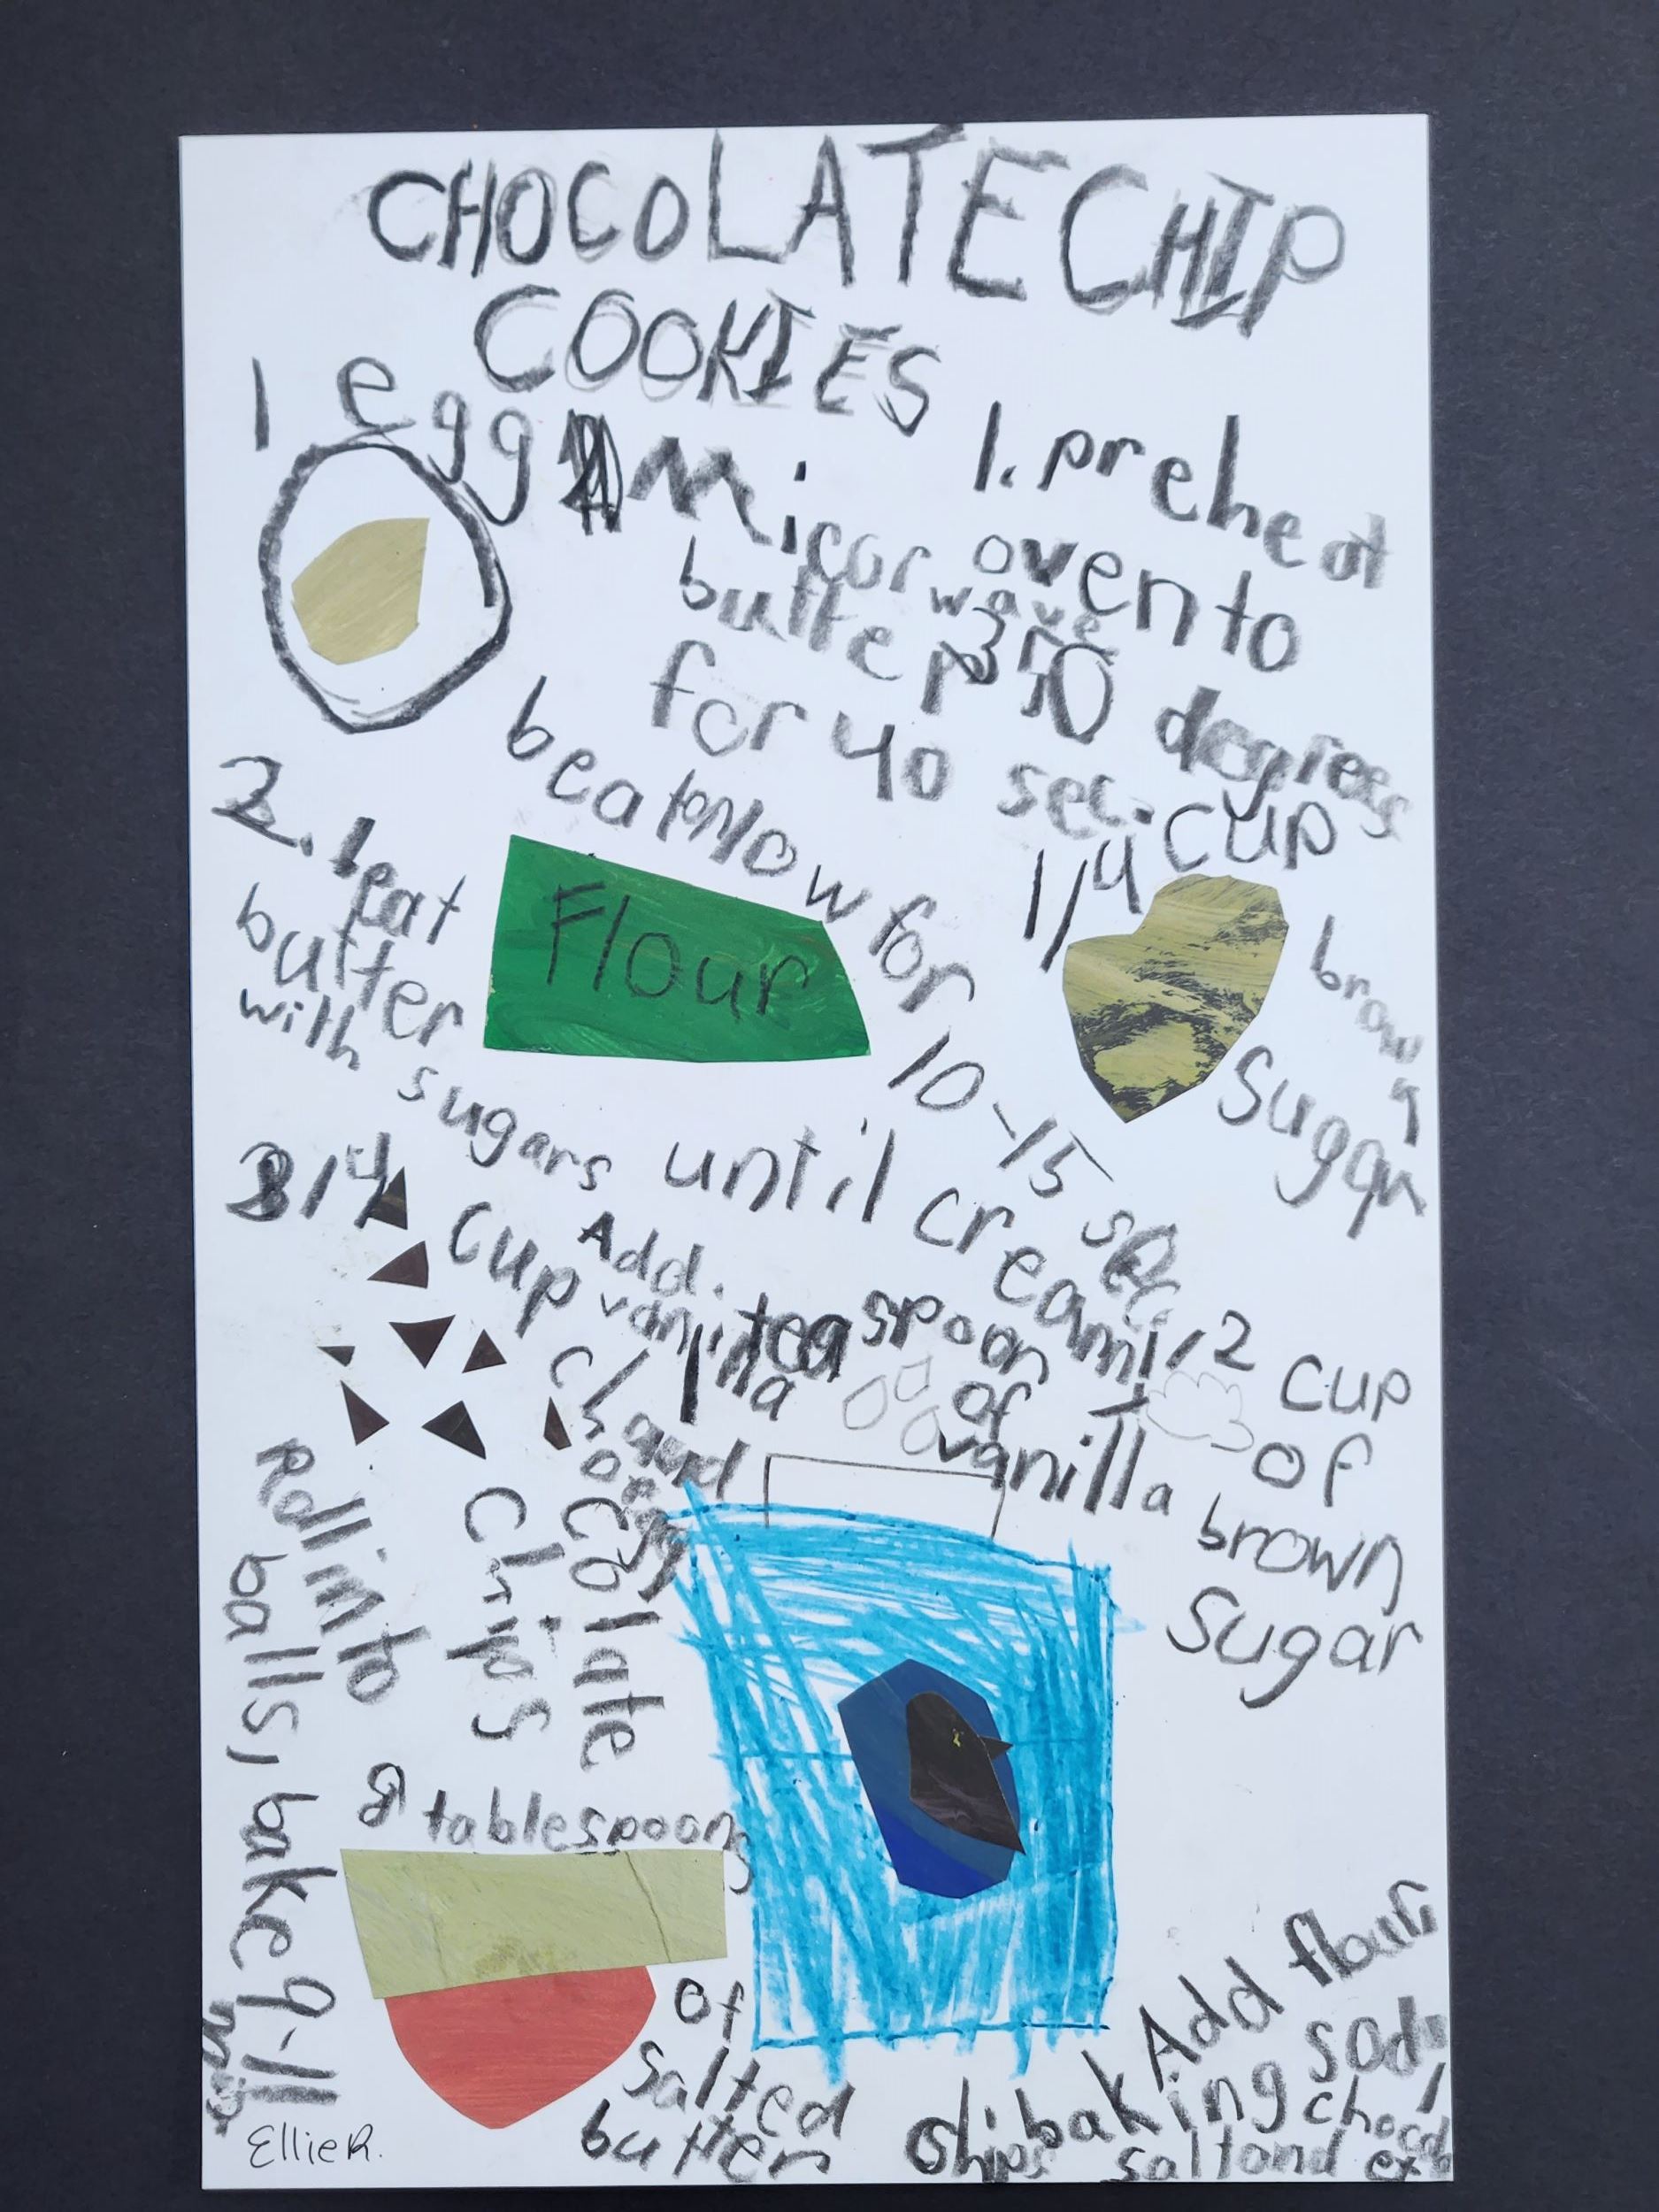 CHOCOLATE CHIP
COOKIES
1 egg
1. preheat
oven to
350 degrees
Micorwave
butter
for 40 sec.
beat on low for 10-15 sec
2. beat
butter
with sugars until creami
Flour
1/4 cup
brown
Sugar
3/4
cup
chocolate
Chips
Add.
vanilla
and
egg
1 teaspoon
of
vanilla
1/2 cup
of
brown
Sugar
Roll into
balls, bake 9-11
8 tablespoons
of
salted
butter
Add flour,
baking soda,
salt and
chips
EllieR.